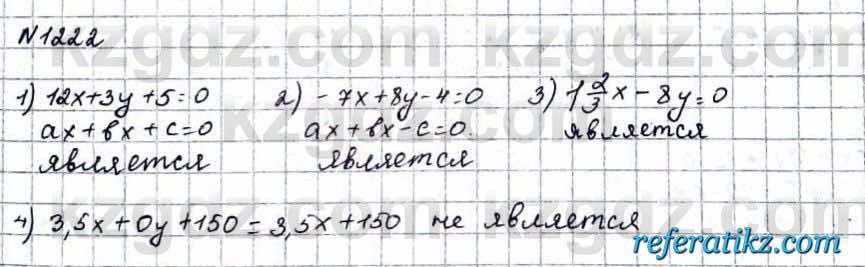 N1222
1) 12x+3y+5=0 2) -7x+8y-4=0 3) 1 2/3 x - 8y=0
ax+bx+c=0 ax+bx-c=0. является
является является
4) 3,5x+0y+150=3,5x+150 не является
referatikz.com